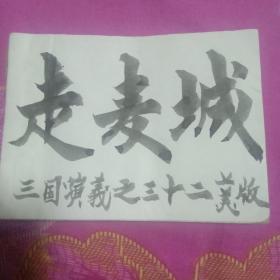 走麦城
三国演義之三十二美版